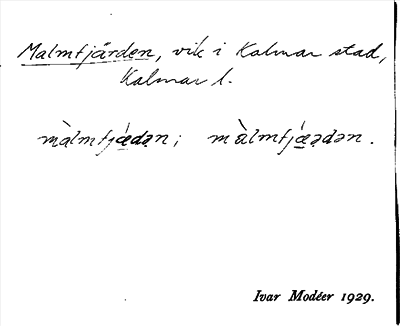 Malmfjärden, vik i Kalmar stad,
Kalmar l.
màlmfjǽdən; màlmfjǽədən.
Ivar Modéer 1929.